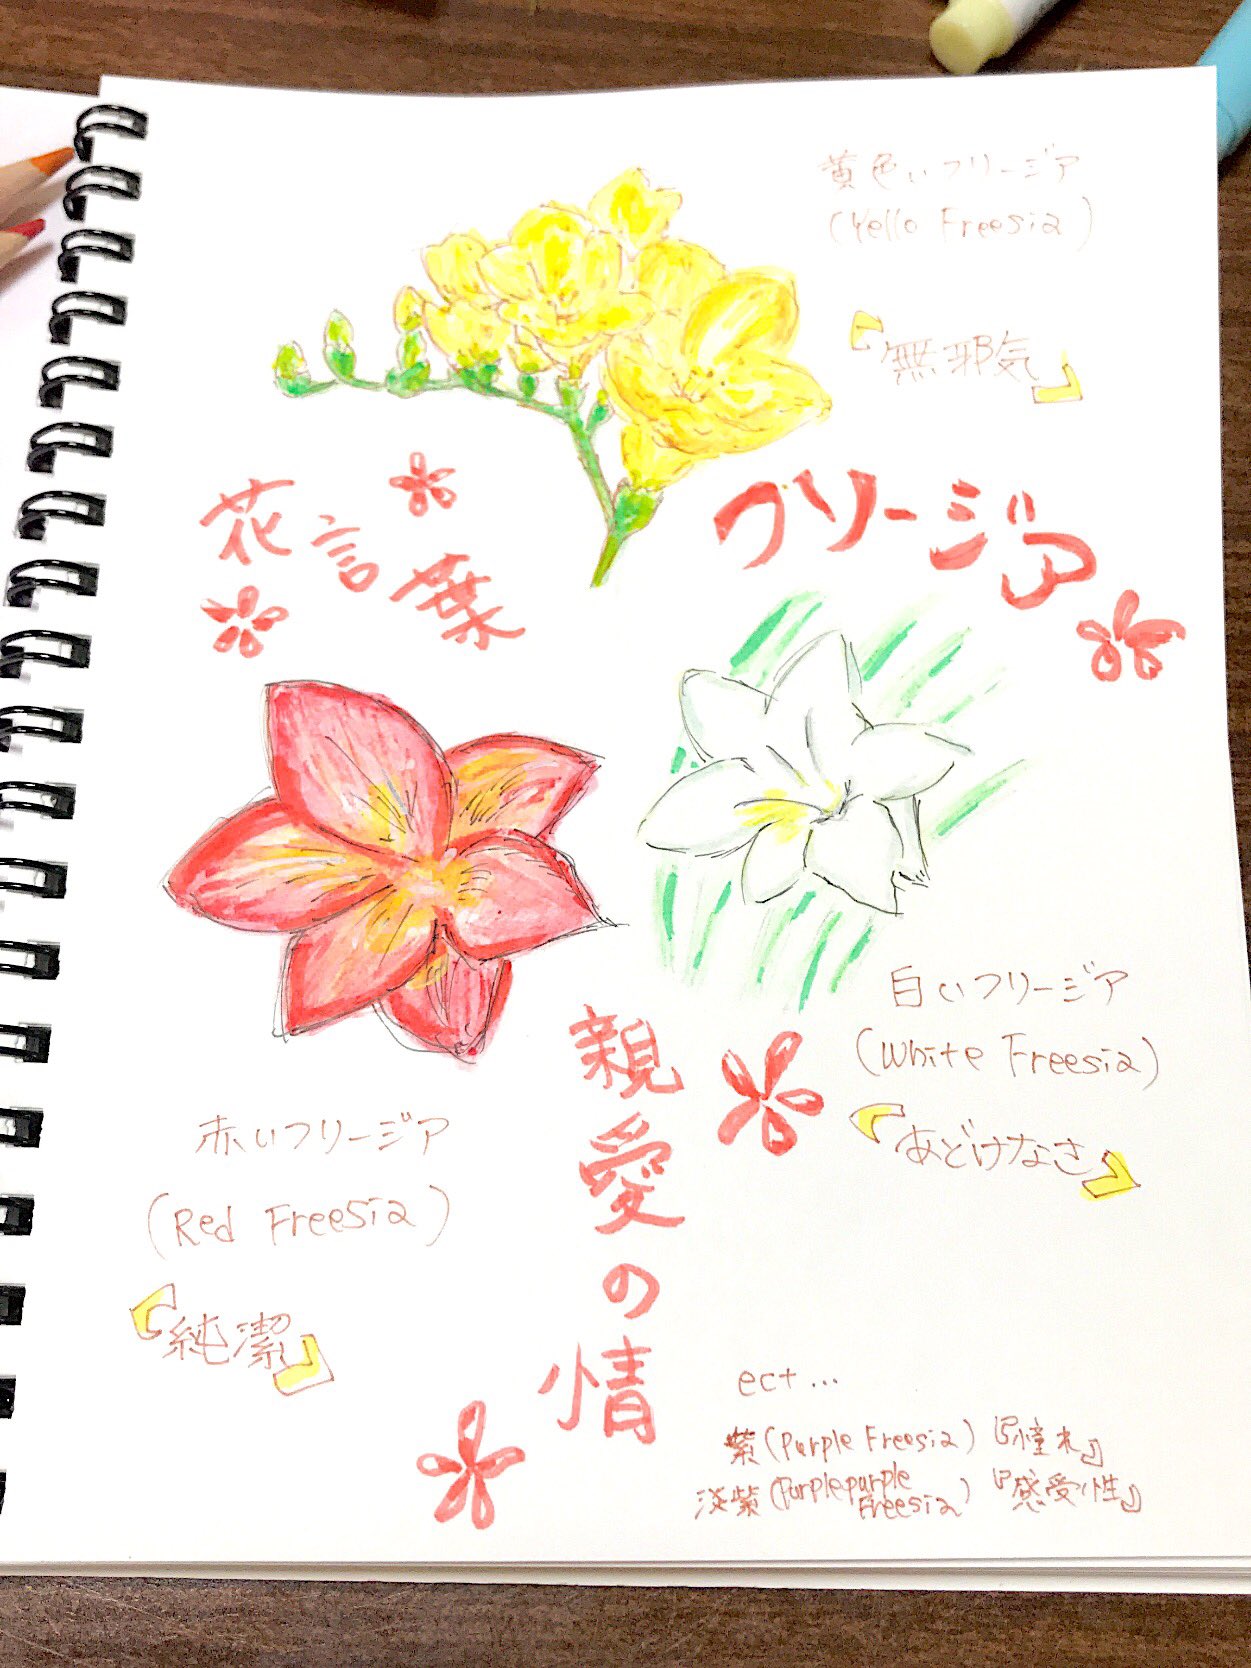 黄色いフリージア
(Yello Freesia)
『無邪気』
花言葉
フリージア
白いフリージア
(White Freesia)
『あどけなさ』
親愛の情
赤いフリージア
(Red Freesia)
『純潔』
ect...
紫(Purple Freesia)『憧れ』
淡紫(Purplepurple Freesia)『感受性』